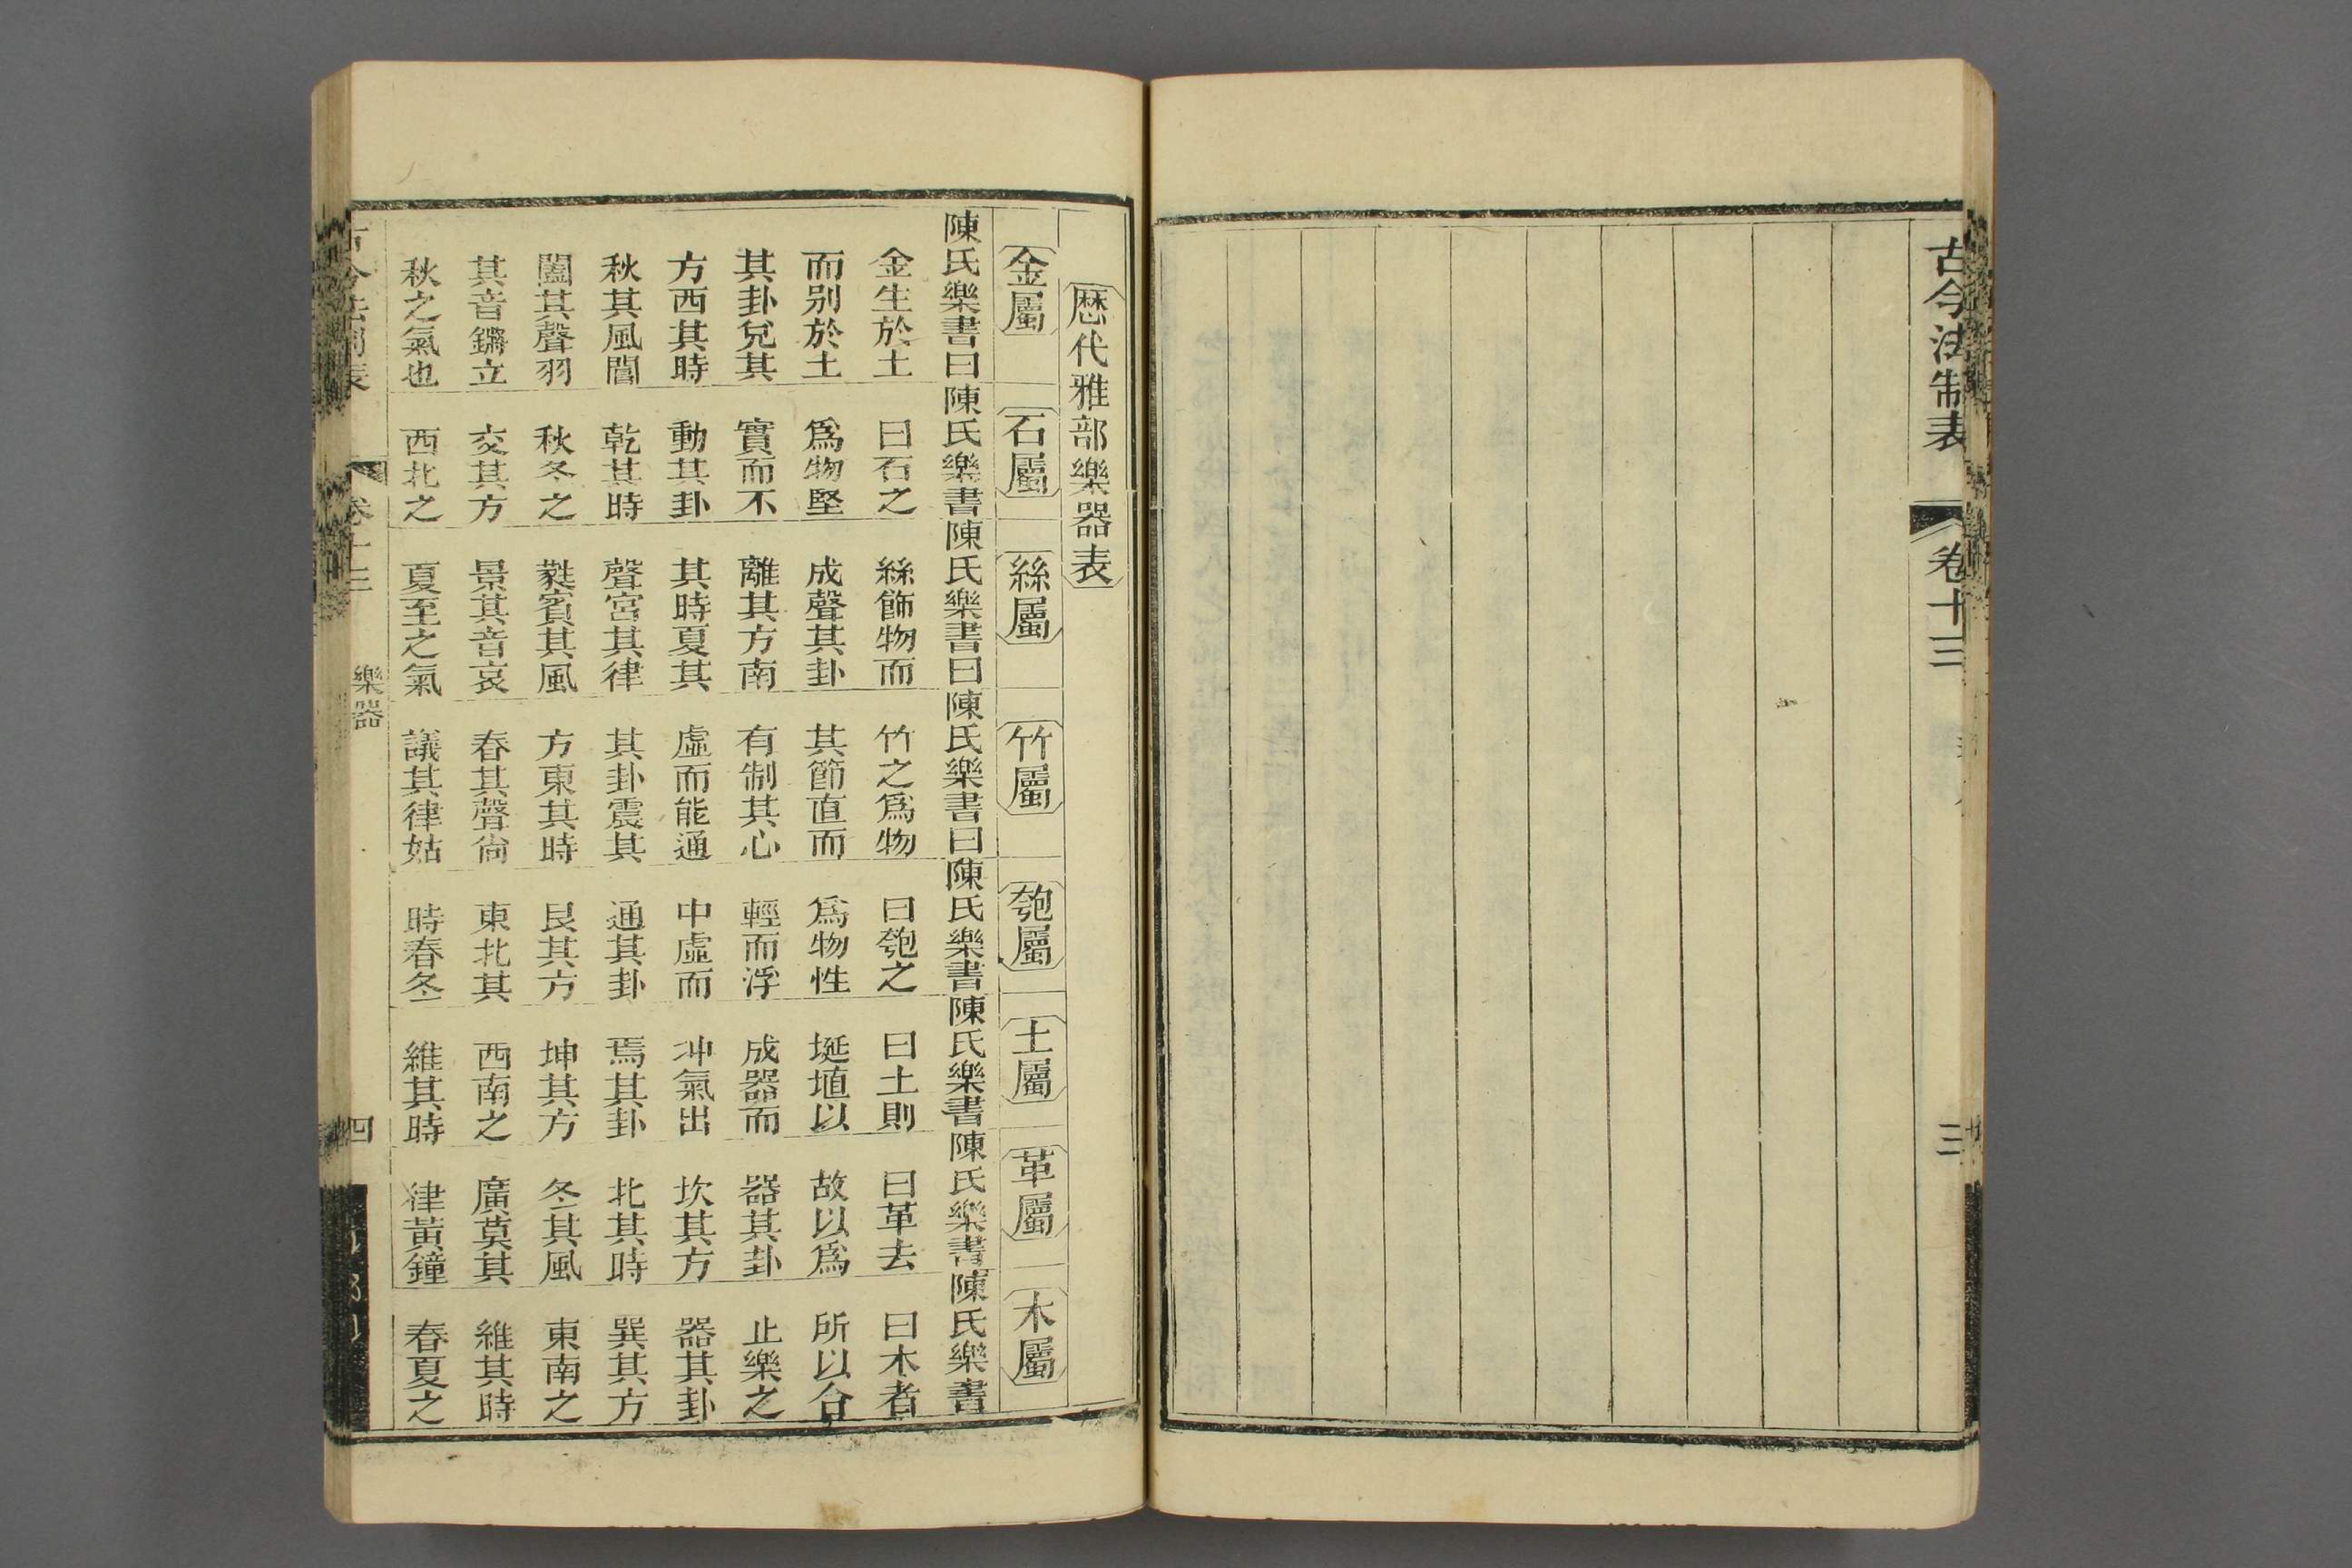 古今法制表
卷十三
三
歷代雅部樂器表
金屬
陳氏樂書曰
金生於土
而别於土
其卦兌其
方西其時
秋其風閶
闔其聲羽
其音鏘立
秋之氣也
石屬
陳氏樂書
曰石之
爲物堅
實而不
動其卦
乾其時
秋冬之
交其方
西北之
絲屬
陳氏樂書曰
絲飾物而
成聲其卦
離其方南
其時夏其
聲宮其律
蕤賓其風
景其音哀
夏至之氣
竹屬
陳氏樂書曰
竹之爲物
其節直而
有制其心
虛而能通
其卦震其
方東其時
春其聲尙
議其律姑
匏屬
陳氏樂書
曰匏之
爲物性
輕而浮
中虛而
通其卦
艮其方
東北其
時春冬
土屬
陳氏樂書
曰土則
埏埴以
成器而
冲氣出
焉其卦
坤其方
西南之
維其時
革屬
陳氏樂書
曰革去
故以爲
器其卦
坎其方
北其時
冬其風
廣莫其
律黃鐘
木屬
陳氏樂書
曰木者
所以合
止樂之
器其卦
巽其方
東南之
維其時
春夏之
古今法制表
卷十三
樂器
四